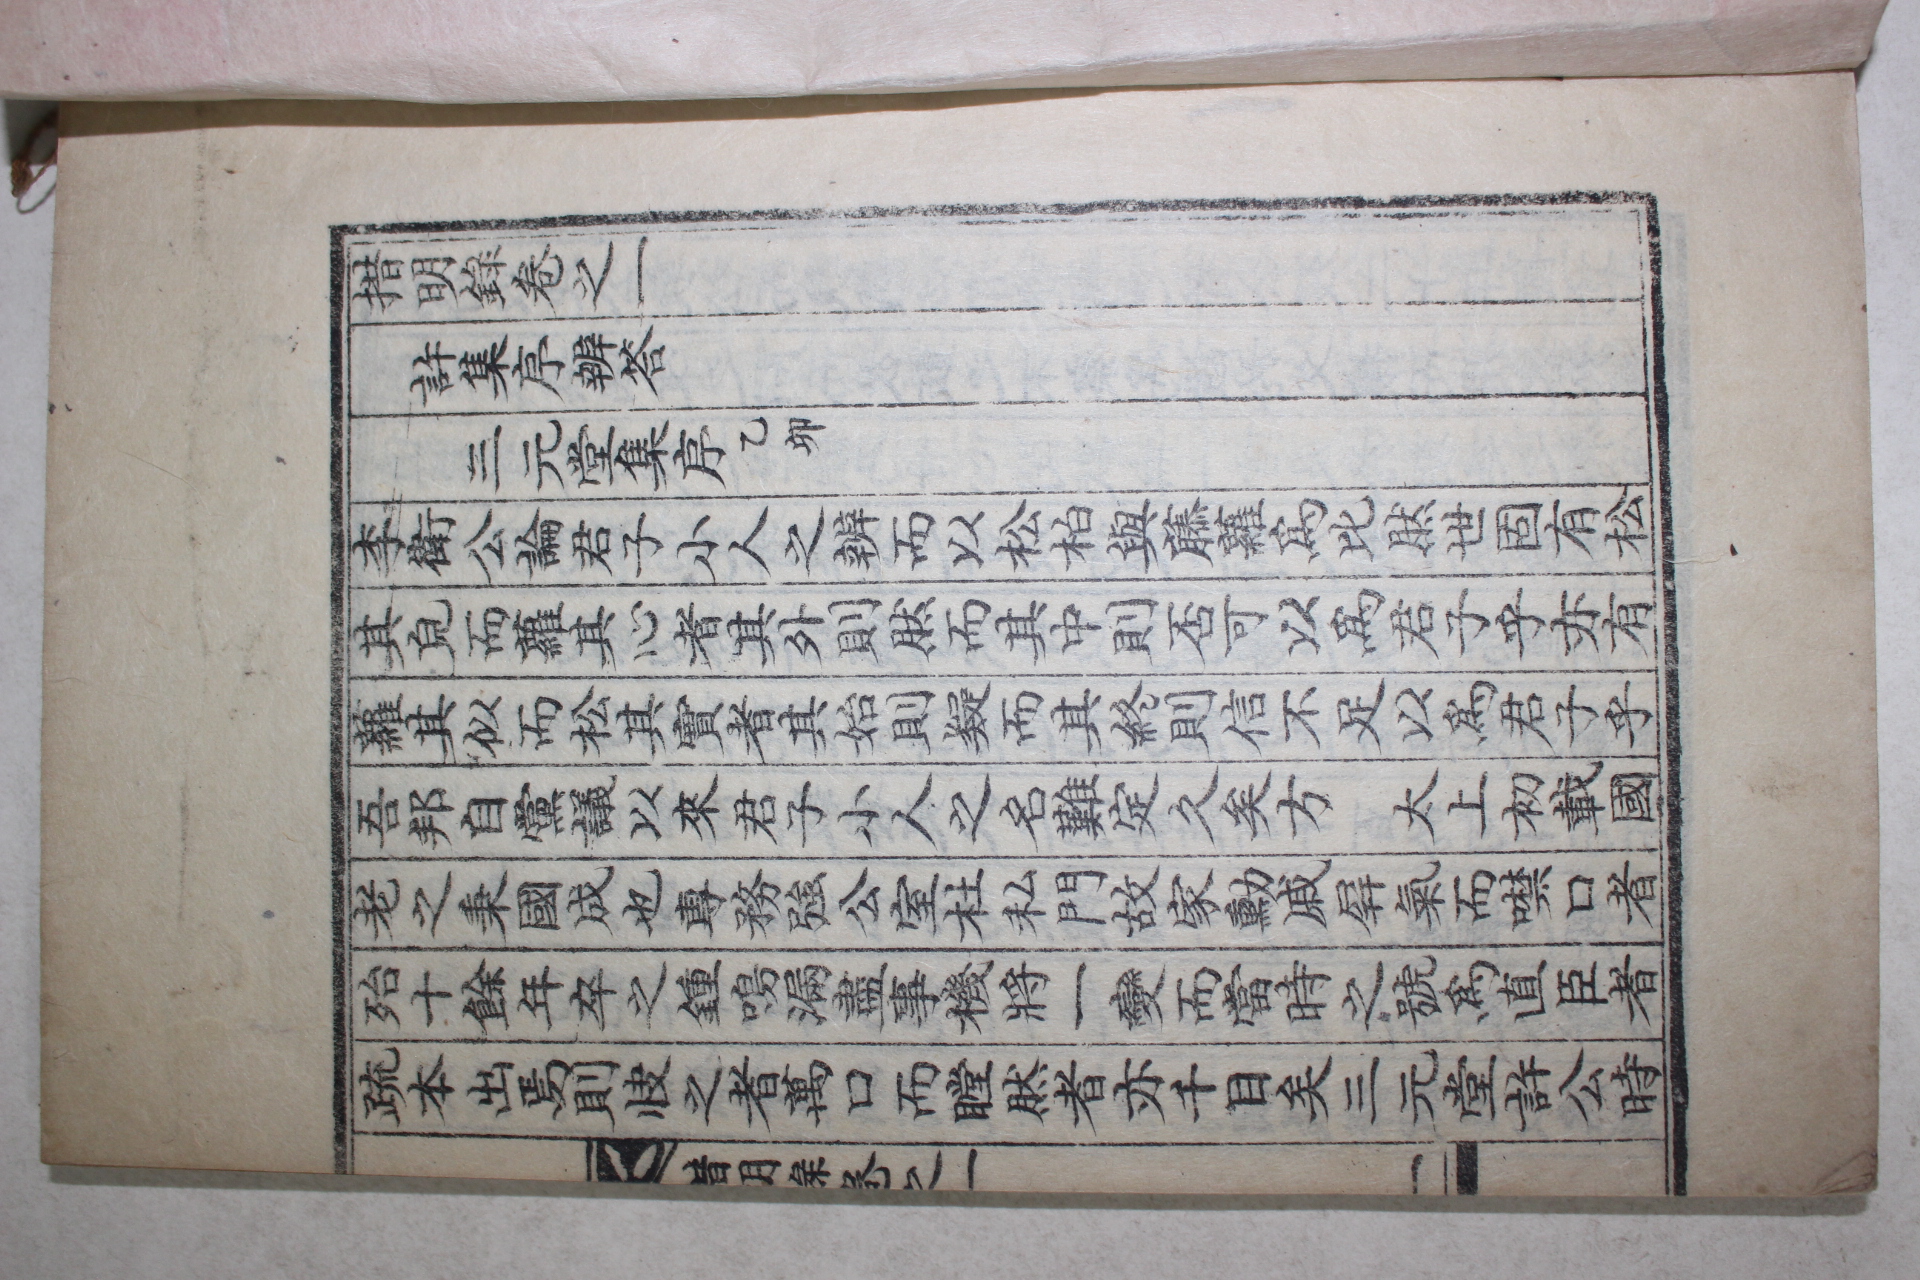 措明錄卷之一
許集序辨答
三元堂集序乙卯
李衛公論君子小人之辨而以松柏與藤蘿爲比然世固有松
其皃而蘿其心者其外則然而其中則否可以爲君子乎亦有
蘿其似而松其實者其始則疑而其終則信不足以爲君子乎
吾邦自黨議以來君子小人之名難定久矣方 太上初載國
老之秉國成也專務强公室杜私門故家勳戚屛氣而噤口者
殆十餘年卒之鍾鳴漏盡事機將一變而當時之號爲直臣者
疏本出焉則快之者萬口而瞠然者亦千目矣三元堂許公時
措明錄卷之一 一